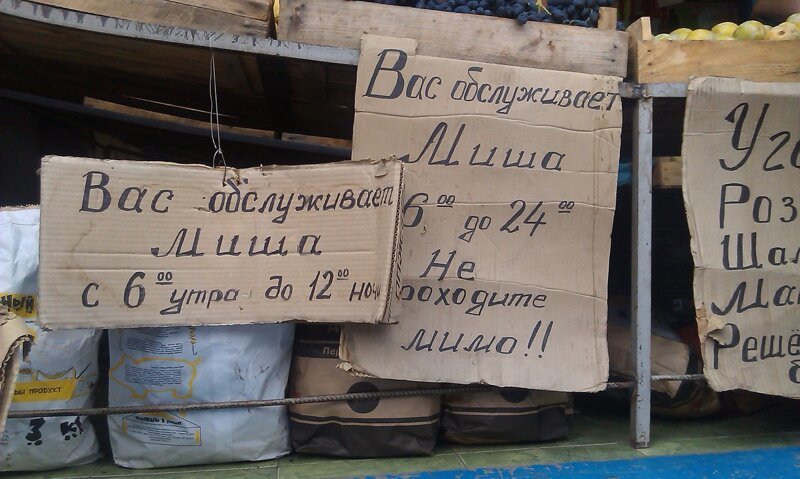 Вас обслуживает
Миша
с 6⁰⁰ утра до 12⁰⁰ ночи
Вас обслуживает
Миша
6⁰⁰ до 24⁰⁰
Не
роходите
мимо!!
Уго
Роз
Шаш
Ман
Решё
ный
ный продукт
3 кг